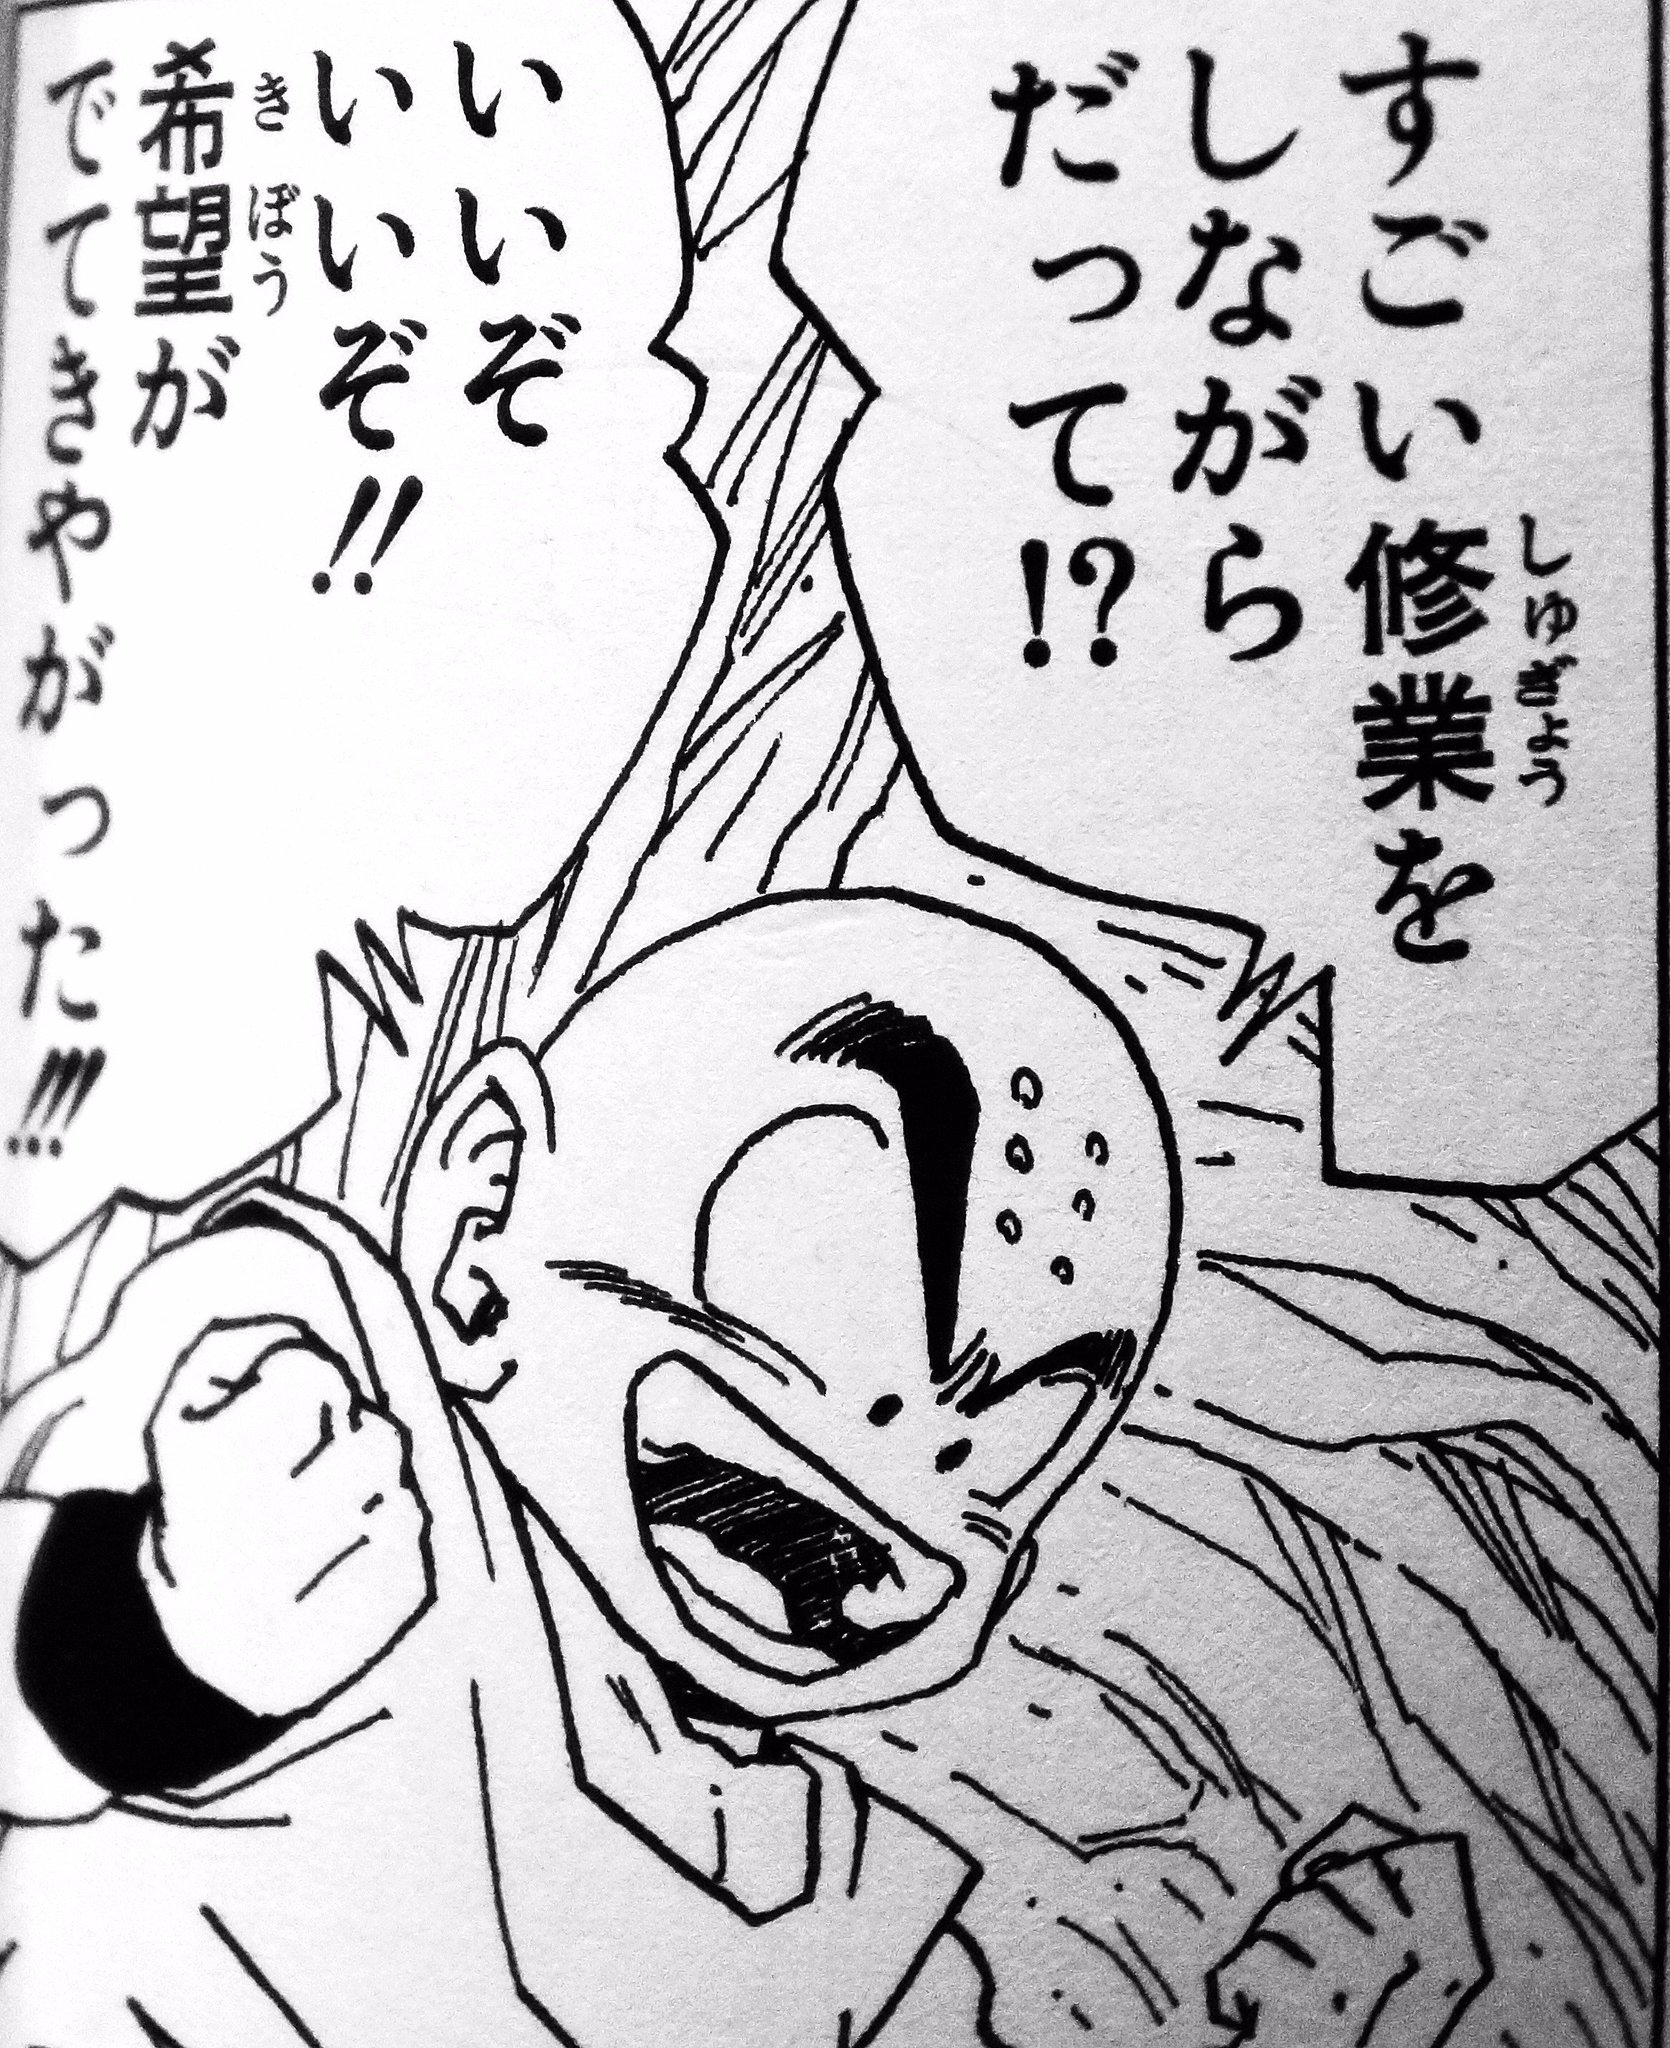 すごい修業を
しながら
だって!?
いいぞ
いいぞ!!
希望が
でてきやがった!!!
しゅぎょう
きぼう